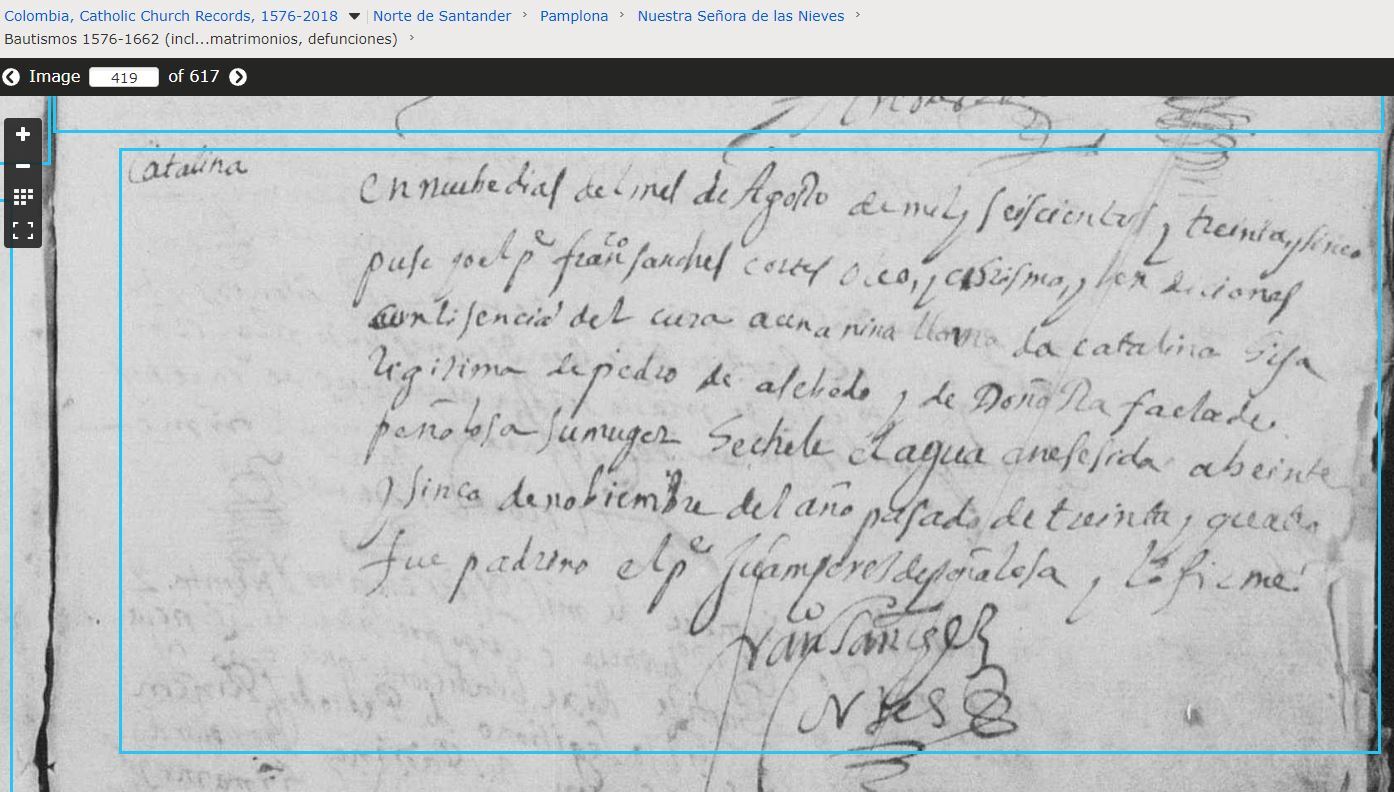 Colombia, Catholic Church Records, 1576-2018 Norte de Santander Pamplona Nuestra Señora de las Nieves
Bautismos 1576-1662 (incl...matrimonios, defunciones)
Image 419 of 617
Catalina
en nuebe dias del mes de Agosto de mil y seiscientos y treinta y sinco
puse yo el pe franco sanches cortes oleo, y crisma, y bendiciones
con lisencia del cura a una nina llamada catalina hija
legitima de pedro de asebedo y de Doña Rafaela de
peñolosa su muger hechele el agua a nesesidad a beinte
y sinco de nobiembre del año pasado de treinta y quatro
fue padrino el pe Juan peres de peñalosa y lo firme